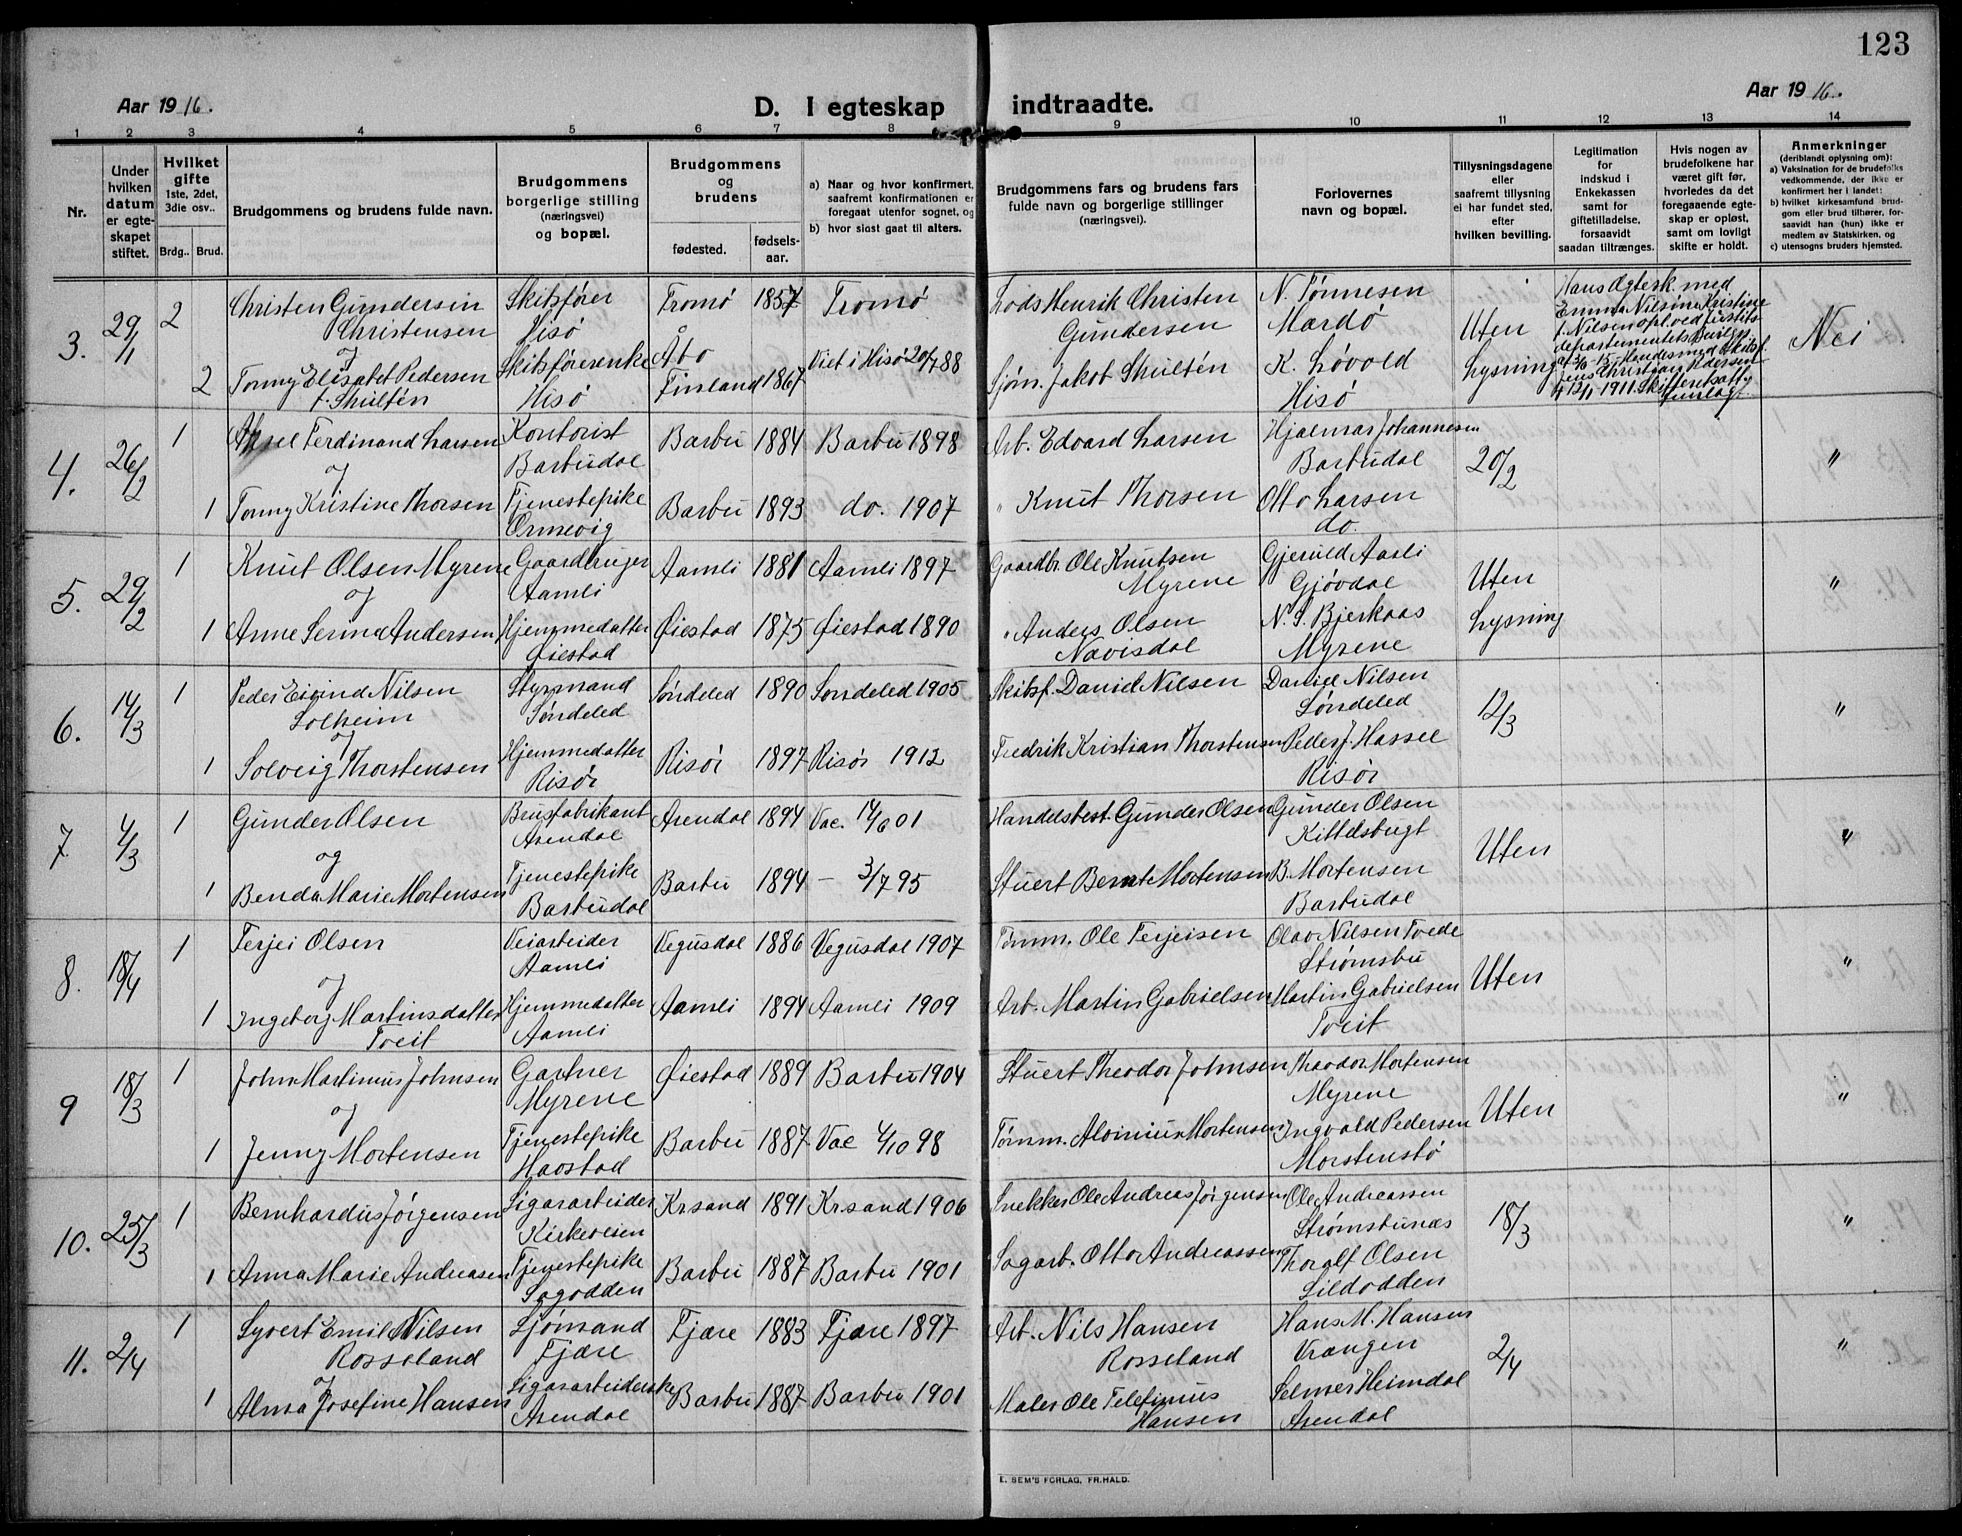 123
Aar 1916.
D. I egteskap indtraadte.
Aar 1916.
1 2 3 4 5 6 7 8 9 10 11 12 13 14
Nr.
Under hvilken datum er egte-skapet stiftet.
Hvilket gifte 1ste, 2det, 3die osv..
Brdg.. Brud.
Brudgommens og brudens fulde navn.
Brudgommens borgerlige stilling (næringsvei) og bopæl.
Brudgommens og brudens
fødested. fødsels-aar.
a) Naar og hvor konfirmert, saafremt konfirmationen er foregaat utenfor sognet, og
b) hvor siast gaat til alters.
Brudgommens fars og brudens fars fulde navn og borgerlige stillinger (næringsvei).
Forlovernes navn og bopæl.
Tillysningsdagene eller saafremt tillysning ei har fundet sted, efter hvilken bevilling.
Legitimation for indskud i Enkekassen samt for giftetilladelse, forsaavidt saadan tiltrænges.
Hvis nogen av brudefolkene har været gift før, hvorledes da det foregaaende egte-skap er opløst, samt om lovligt skifte er holdt.
Anmerkninger (deriblandt oplysning om): a) Vaksination for de brudefolks vedkommende, der ikke er konfirmert her i landet; b) hvilket kirkesamfund brud-gom eller brud tilhører, for-saavidt han (hun) ikke er medlem av Statskirken, og c) utensogns bruders hjemsted.
3. 29/1 2 Christen Gundersen Christensen Skibsfører Hisö Tromö 1857 Tromö Lods Henrik Christen Gundersen N. Tönnesen Mardö Uten Lysning Nei
og
2 Tonny Elisabet Pedersen f. Shultén Skibsförerenke Hisö Åbo Finland 1867 Viet i Hisö 20/7 88 Sjöm. Jakob Shultén K. Lövold Hisö
Hans Egtesk. med
Emma Nilsine Kristine
f. Nilsen opl. ved Justits
departementets Bevilgn.
4. 26/2 1 Aksel Ferdinand Larsen Kontorist Barbudal Barbu 1884 Barbu 1898 Arb. Edvard Larsen Hjalmar Johannesen Barbudal 20/2 "
og
1 Tonny Kristine Thorsen Tjenestepike Ormevig Barbu 1893 do. 1907 " Knut Thorsen Otto Larsen do.
5. 29/2 1 Knut Olsen Myrene Gaardbruger Aamli Aamli 1881 Aamli 1897 Gaardbr. Ole Knutsen Myrene Gjeruld Aasli Gjövdal Uten Lysning "
og
1 Anne Serina Andersen Hjemmedatter Öiestad Öiestad 1875 Öiestad 1890 " Anders Olsen Navisdal N. S. Bjerkaas Myrene
6. 14/3 1 Peder Eivind Nilsen Solheim Styrmand Söndeled Söndeled 1890 Söndeled 1905 Skibsf. Daniel Nilsen Daniel Nilsen Söndeled 12/3 "
og
1 Solveig Thorstensen Hjemmedatter Risör Risör 1897 Risör 1912 Fredrik Kristian Thorstensen Peder J. Hassel Risör
7. 4/3 1 Gunder Olsen Brusfabrikant Arendal Arendal 1894 Vac. 14/6 01 Handelsbest. Gunder Olsen Gunder Olsen Kittelsbugt Uten "
og
1 Benda Marie Mortensen Tjenestepike Barbudal Barbu 1894 — 3/7 95 Stuert Bernt Mortensen B. Mortensen Barbudal
8. 18/4 1 Terjei Olsen Veiarbeider Aamli Vegusdal 1886 Vegusdal 1907 Tömm. Ole Terjeisen Olav Nilsen Tvede Strömsbu Uten "
og
1 Ingeborg Martinsdatter Tveit Hjemmedatter Aamli Aamli 1894 Aamli 1909 Arb. Martin Gabrielsen Martin Gabrielsen Tveit
9 18/3 1 John Martinius Johnsen Gartner Myrene Öiestad 1889 Barbu 1904 Stuert Theodor Johnsen Theodor Mortensen Myrene Uten "
og
1 Jenny Mortensen Tjenestepike Haostad Barbu 1887 Vac 4/10 98 Tömm. Alonius Mortensen Ingvald Pedersen Morstenstö
10. 25/3 1 Bernhardus Jörgensen Sigararbeider Kirkeveien Krsand 1891 Krsand 1906 Snekker Ole Andreas Jörgensen Ole Andreassen Strömsbunæs 18/3 "
1 Anna Marie Andreasen Tjenestepike Sagodden Barbu 1887 Barbu 1901 Sagarb. Otto Andreassen Thoralf Olsen Sildodden
11. 2/4 1 Syvert Emil Nilsen Rosseland Sjömand Fjære Fjære 1883 Fjære 1897 Arb. Nils Hansen Rosseland Hans M. Hansen Vrangen 2/4 "
og
1 Alma Josefine Hansen Sigararbeiderske Arendal Barbu 1887 Barbu 1901 Maler Ole Telefinius Hansen Selmer Heimdal Arendal
E. SEM'S FORLAG, FR.HALD.